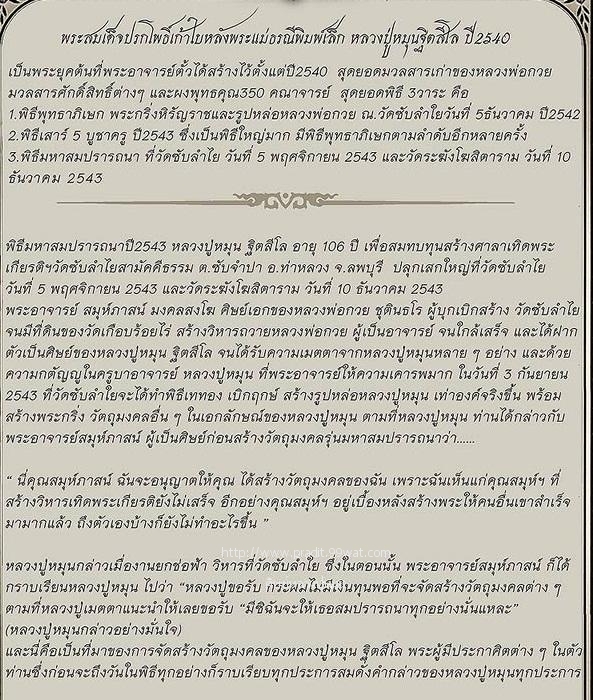 พระสมเด็จปรกโพธิ์เก้าใบหลังพระแม่ธรณีพิมพ์เล็ก หลวงปู่หมุนฐิตสีโล ปี2540
เป็นพระยุคต้นที่พระอาจารย์ตั้วได้สร้างไว้ตั้งแต่ปี2540 สุดยอดมวลสารเก่าของหลวงพ่อกวย
มวลสารศักดิ์สิทธิ์ต่างๆ และผงพุทธคุณ350 คณาจารย์ สุดยอดพิธี 3วาระ คือ
1.พิธีพุทธาภิเษก พระกริ่งหิรัญราชและรูปหล่อหลวงพ่อกวย ณ.วัดซับลำใยวันที่ 5ธันวาคม ปี2542
2.พิธีเสาร์ 5 บูชาครู ปี2543 ซึ่งเป็นพิธีใหญ่มาก มีพิธีพุทธาภิเษกตามลำดับอีกหลายครั้ง
3.พิธีมหาสมปรารถนา ที่วัดซับลำใย วันที่ 5 พฤศจิกายน 2543 และวัดระฆังโฆสิตาราม วันที่ 10
ธันวาคม 2543
พิธีมหาสมปรารถนาปี2543 หลวงปู่หมุน ฐิตสีโล อายุ 106 ปี เพื่อสมทบทุนสร้างศาลาเทิดพระ
เกียรติฯวัดซับลำใยสามัคคีธรรม ต.ซับจำปา อ.ท่าหลวง จ.ลพบุรี ปลุกเสกใหญ่ที่วัดซับลำใย
วันที่ 5 พฤศจิกายน 2543 และวัดระฆังโฆสิตาราม วันที่ 10 ธันวาคม 2543
พระอาจารย์ สมุห์ภาสน์ มงคลสงโฆ ศิษย์เอกของหลวงพ่อกวย ชุตินธโร ผู้บุกเบิกสร้าง วัดซับลำใย
จนมีที่ดินของวัดเกือบร้อยไร่ สร้างวิหารถวายหลวงพ่อกวย ผู้เป็นอาจารย์ จนใกล้เสร็จ และได้ฝาก
ตัวเป็นศิษย์ของหลวงปู่หมุน ฐิตสีโล จนได้รับความเมตตาจากหลวงปู่หมุนหลาย ๆ อย่าง และด้วย
ความกตัญญูในครูบาอาจารย์ หลวงปู่หมุน ที่พระอาจารย์ให้ความเคารพมาก ในวันที่ 3 กันยายน
2543 ที่วัดซับลำใยจะได้ทำพิธีเททอง เบิกฤกษ์ สร้างรูปหล่อหลวงปู่หมุน เท่าองค์จริงขึ้น พร้อม
สร้างพระกริ่ง วัตถุมงคลอื่น ๆ ในเอกลักษณ์ของหลวงปู่หมุน ตามที่หลวงปู่หมุน ท่านได้กล่าวกับ
พระอาจารย์สมุห์ภาสน์ ผู้เป็นศิษย์ก่อนสร้างวัตถุมงคลรุ่นมหาสมปรารถนาว่า......
“ นี่คุณสมุห์ภาสน์ ฉันจะอนุญาตให้คุณ ได้สร้างวัตถุมงคลของฉัน เพราะฉันเห็นแก่คุณสมุห์ฯ ที่
สร้างวิหารเทิดพระเกียรติยังไม่เสร็จ อีกอย่างคุณสมุห์ฯ อยู่เบื้องหลังสร้างพระให้คนอื่นเขาสำเร็จ
มามากแล้ว ถึงตัวเองบ้างก็ยังไม่ทำอะไรขึ้น ”
http://www.pradit.99wat.com
หลวงปู่หมุนกล่าวเมื่องานยกช่อฟ้า วิหารที่วัดซับลำใย ซึ่งในตอนนั้น พระอาจารย์สมุห์ภาสน์ ก็ได้
กราบเรียนหลวงปู่หมุน ไปว่า “หลวงปู่ขอรับ กระผมไม่มีเงินทุนพอที่จะจัดสร้างวัตถุมงคลต่าง ๆ
ตามที่หลวงปู่เมตตาแนะนำให้เลยขอรับ “มีซิฉันจะให้เธอสมปรารถนาทุกอย่างนั่นแหละ”
(หลวงปู่หมุนกล่าวอย่างมั่นใจ)
และนี่คือเป็นที่มาของการจัดสร้างวัตถุมงคลของหลวงปู่หมุน ฐิตสีโล พระผู้มีประกาศิตต่าง ๆ ในตัว
ท่านซึ่งก่อนจะถึงวันในพิธีทุกอย่างก็ราบเรียบทุกประการสมดั่งคำกล่าวของหลวงปู่หมุนทุกประการ